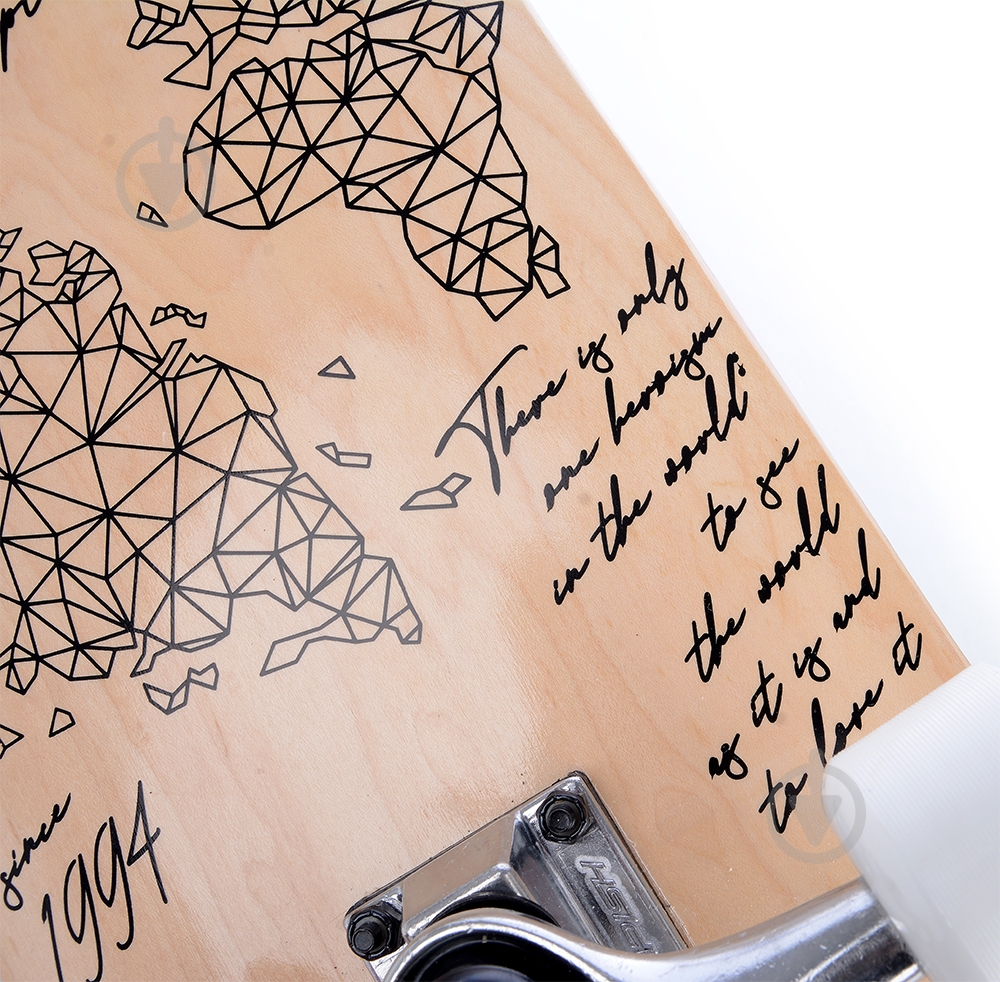 There is only
one heroism
in the world:
to see
the world
as it is and
to love it
since
1994